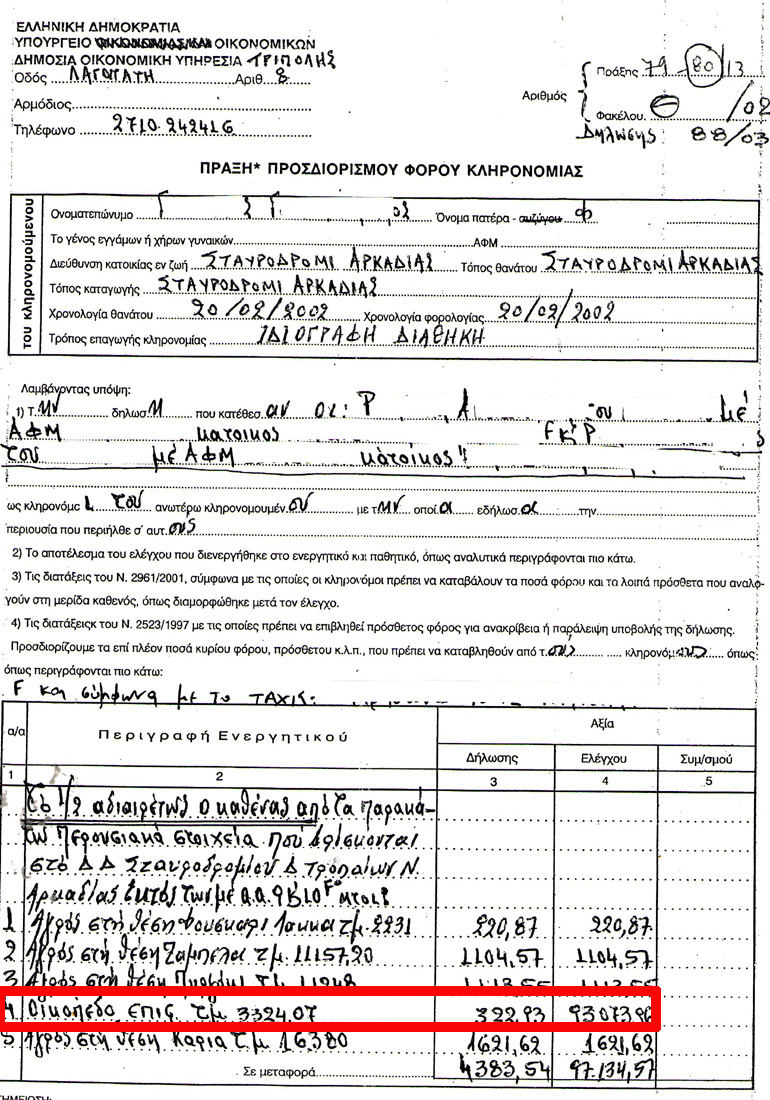 ΕΛΛΗΝΙΚΗ ΔΗΜΟΚΡΑΤΙΑ
ΥΠΟΥΡΓΕΙΟ ΟΙΚΟΝΟΜΙΚΩΝ
ΔΗΜΟΣΙΑ ΟΙΚΟΝΟΜΙΚΗ ΥΠΗΡΕΣΙΑ ΤΡΙΠΟΛΗΣ
Οδός Αριθ. 8
Αρμόδιος
Τηλέφωνο 2710.242416
Αριθμός
Πράξης 79 - 80/13
Φακέλου /02
Δηλώσης 88/03
ΠΡΑΞΗ* ΠΡΟΣΔΙΟΡΙΣΜΟΥ ΦΟΡΟΥ ΚΛΗΡΟΝΟΜΙΑΣ
του κληρονομούμενου
Ονοματεπώνυμο ος Όνομα πατέρα - συζύγου Φ
Το γένος εγγάμων ή χήρων γυναικών ΑΦΜ
Διεύθυνση κατοικίας εν ζωή ΣΤΑΥΡΟΔΡΟΜΙ ΑΡΚΑΔΙΑΣ Τόπος θανάτου ΣΤΑΥΡΟΔΡΟΜΙ ΑΡΚΑΔΙΑΣ
Τόπος καταγωγής ΣΤΑΥΡΟΔΡΟΜΙ ΑΡΚΑΔΙΑΣ
Χρονολογία θανάτου 20/02/2002 Χρονολογία φορολογίας 20/02/2002
Τρόπος επαγωγής κληρονομίας ΙΔΙΟΓΡΑΦΗ ΔΙΑΘΗΚΗ
Λαμβάνοντας υπόψη:
1) Τ.ην δηλωση που κατέθεσ.αν οι: Ρ Α ου με
ΑΦΜ κατοικος Ρ
του με ΑΦΜ κατοικος
ως κληρονόμοι του ανωτέρω κληρονομουμέν.ου με την οποία εδήλωσα την
περιουσία που περιήλθε σ' αυτ.ους
2) Το αποτέλεσμα του ελέγχου που διενεργήθηκε στο ενεργητικό και παθητικό, όπως αναλυτικά περιγράφονται πιο κάτω.
3) Τις διατάξεις του Ν. 2961/2001, σύμφωνα με τις οποίες οι κληρονόμοι πρέπει να καταβάλουν τα ποσά φόρου και τα λοιπά πρόσθετα που αναλο-
γούν στη μερίδα καθενός, όπως διαμορφώθηκε μετά τον έλεγχο.
4) Τις διατάξειςκ του Ν. 2523/1997 με τις οποίες πρέπει να επιβληθεί πρόσθετος φόρος για ανακρίβεια ή παράλειψη υποβολής της δήλωσης.
Προσδιορίζουμε τα επί πλέον ποσά κυρίου φόρου, πρόσθετου κ.λ.π., που πρέπει να καταβληθούν από τ.ους κληρονόμους όπως
όπως περιγράφονται πιο κάτω:
και σύμφωνα με το TAXIS:
α/α Περιγραφή Ενεργητικού Αξία
Δήλωσης Ελέγχου Συμ/σμού
1 2 3 4 5
Το 1/2 αδιαιρέτως ο καθένας από τα παρακά-
τω περουσιακά στοιχεία που βρίσκονται
στο ΔΔ Σταυροδρομίου Δ Τροπαίων Ν.
Αρκαδίας εκτός των με α.α. 9
1 Αγρός στη θέση Φουσκαρι Λακκα τμ. 2231 220,87 220,87
2 Αγρός στη θέση Ζαμπελα τμ. 11157,20 1104,57 1104,57
3 Αγρός στη θέση τμ. 11248 1113,55 1113,55
4 Οικόπεδο επις τμ 3324.07 322,93 93073,96
5 Αγρός στη θέση Καρια τμ 16380 1621,62 1621,62
Σε μεταφορά 4383,54 97.134,57